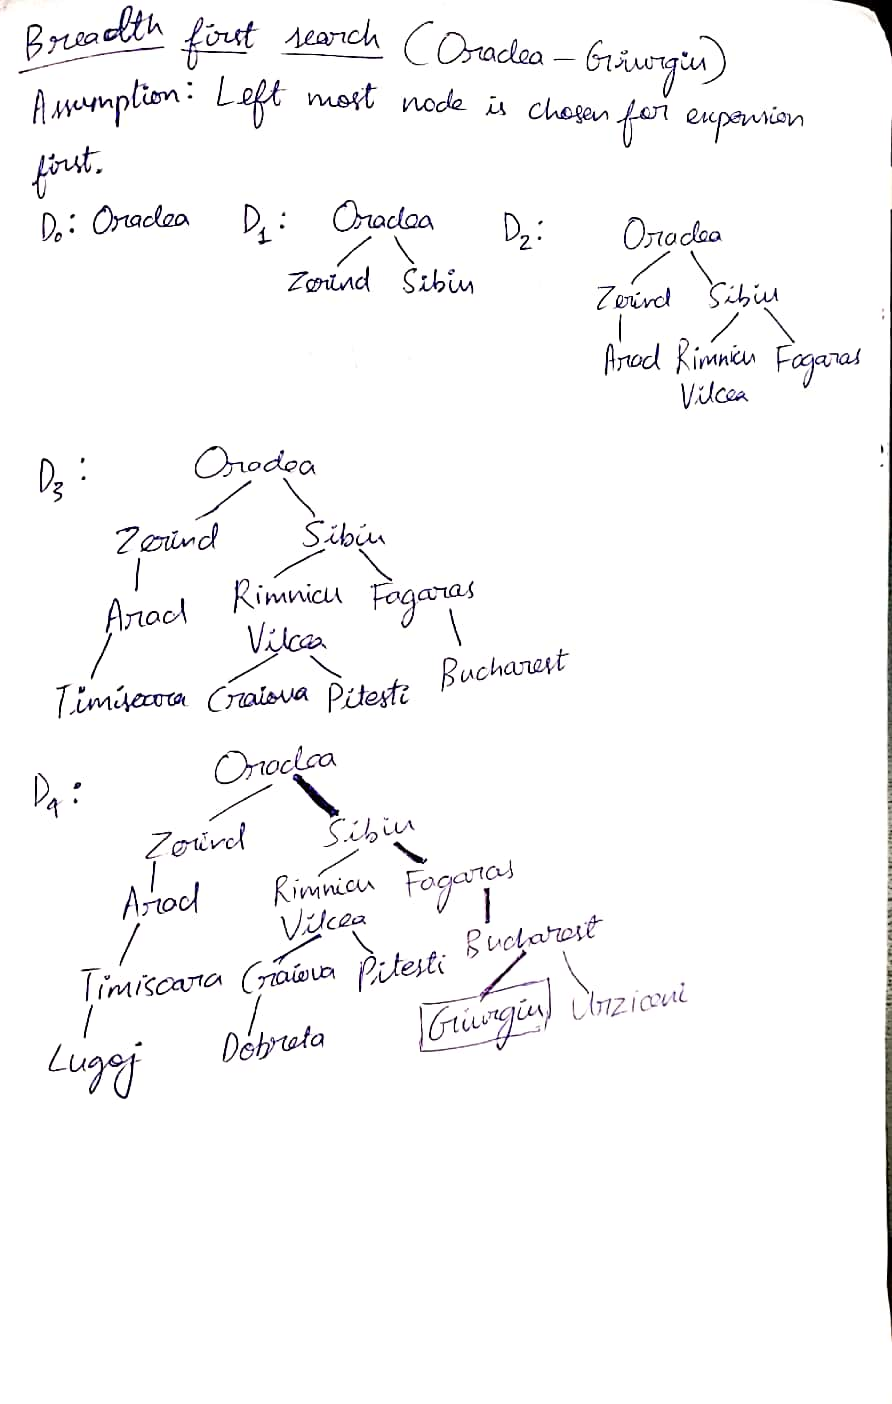 Breadth first search (Oradea – Giurgiu)
Assumption: Left most node is chosen for expension
first.
D₀: Oradea D₁: Oradea D₂: Oradea
Zerind Sibiu
Zerind Sibiu
Arad Rimnicu Fagaras
Vilcea
D₃: Oradea
Zerind Sibiu
Arad Rimnicu Fagaras
Vilcea
Timisoara Craiova Pitesti Bucharest
D₄: Oradea
Zerind Sibiu
Arad Rimnicu Fagaras
Vilcea
Timisoara Craiova Pitesti Bucharest
Lugoj Dobreta Giurgiu Urziceni